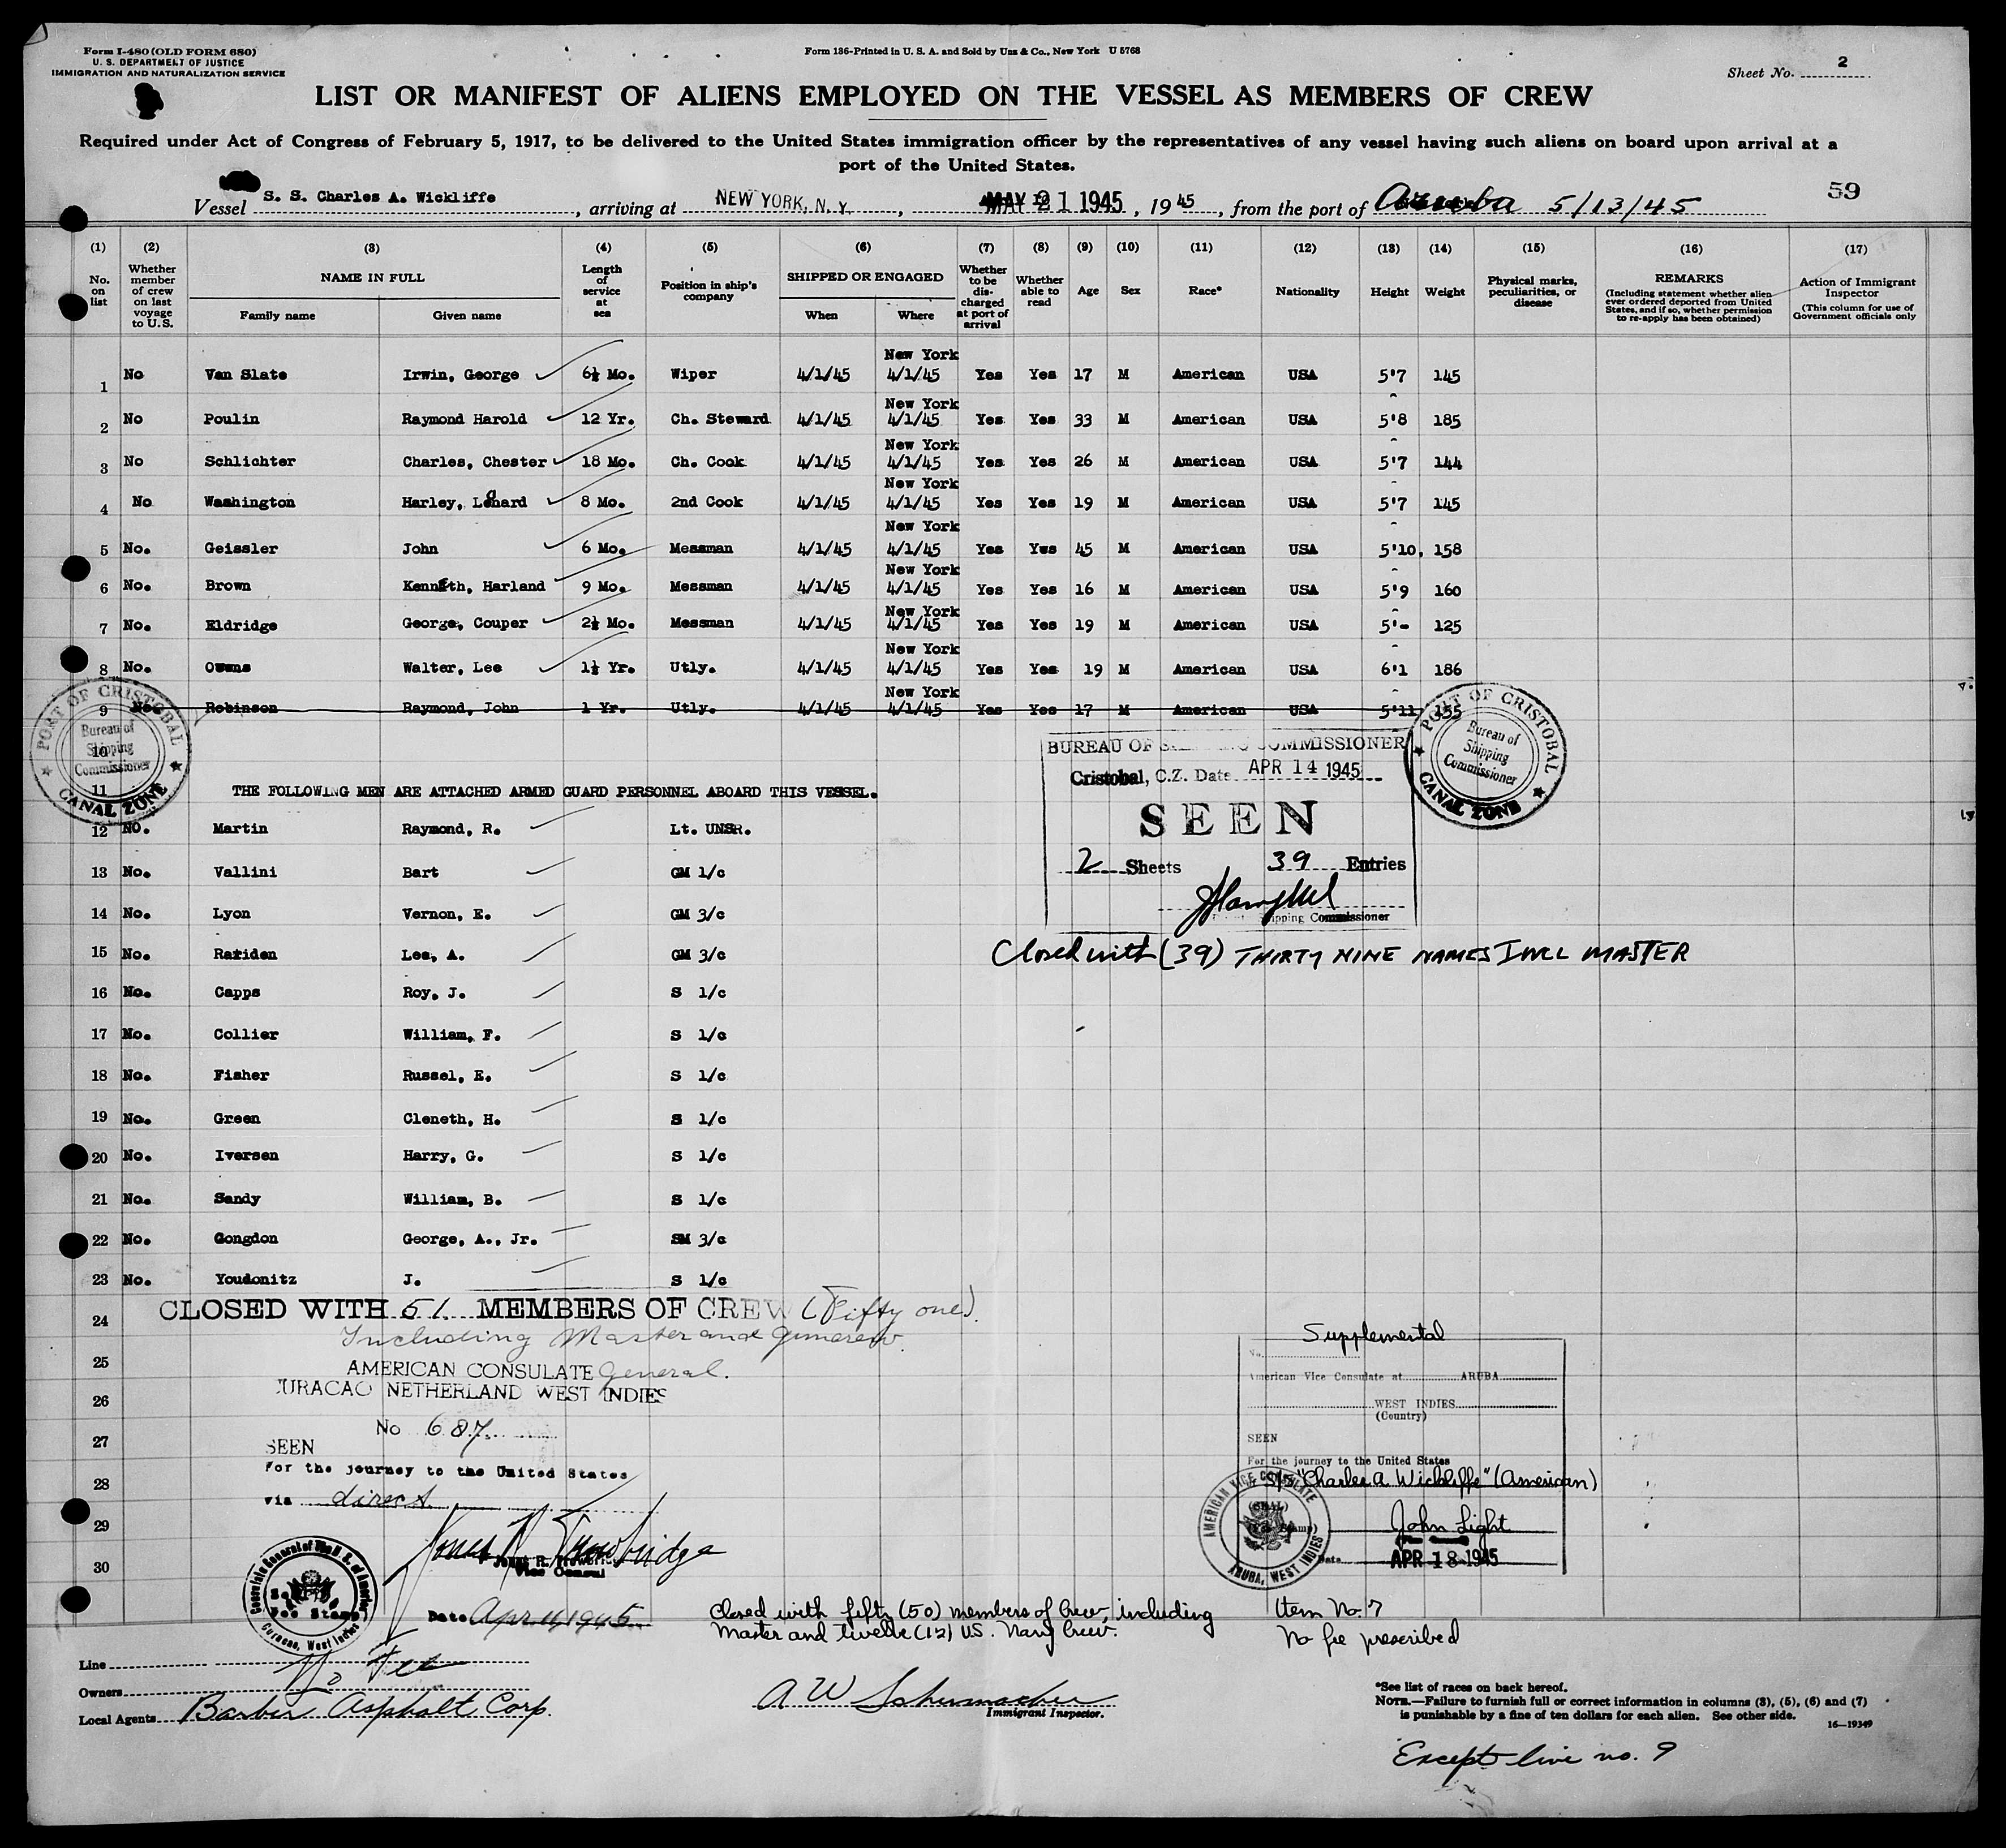 Form I-480 (OLD FORM 680)
U. S. DEPARTMENT OF JUSTICE
IMMIGRATION AND NATURALIZATION SERVICE
Form 186-Printed in U. S. A. and Sold by Unz & Co., New York U 5768
Sheet No. 2
LIST OR MANIFEST OF ALIENS EMPLOYED ON THE VESSEL AS MEMBERS OF CREW
Required under Act of Congress of February 5, 1917, to be delivered to the United States immigration officer by the representatives of any vessel having such aliens on board upon arrival at a
port of the United States.
Vessel S. S. Charles A. Wickliffe, arriving at NEW YORK, N. Y., MAY 21 1945, 19 45, from the port of Aruba 5/13/45
59
(1) (2) (3) (4) (5) (6) (7) (8) (9) (10) (11) (12) (13) (14) (15) (16) (17)
No. on list
Whether member of crew on last voyage to U.S.
NAME IN FULL
Family name Given name
Length of service at sea
Position in ship's company
SHIPPED OR ENGAGED
When Where
Whether to be discharged at port of arrival
Whether able to read
Age
Sex
Race*
Nationality
Height
Weight
Physical marks, peculiarities, or disease
REMARKS
(Including statement whether alien ever ordered deported from United States, and if so, whether permission to re-apply has been obtained)
Action of Immigrant Inspector
(This column for use of Government officials only
New York
1 No Van Slate Irwin, George 6½ Mo. Wiper 4/1/45 4/1/45 Yes Yes 17 M American USA 5'7 145
New York
2 No Poulin Raymond Harold 12 Yr. Ch. Steward 4/1/45 4/1/45 Yes Yes 33 M American USA 5'8 185
New York
3 No Schlichter Charles, Chester 18 Mo. Ch. Cook 4/1/45 4/1/45 Yes Yes 26 M American USA 5'7 144
New York
4 No Washington Harley, Lenard 8 Mo. 2nd Cook 4/1/45 4/1/45 Yes Yes 19 M American USA 5'7 145
New York
5 No. Geissler John 6 Mo. Messman 4/1/45 4/1/45 Yes Yws 45 M American USA 5'10, 158
New York
6 No. Brown Kenneth, Harland 9 Mo. Messman 4/1/45 4/1/45 Yes Yes 16 M American USA 5'9 160
New York
7 No. Eldridge George, Couper 2½ Mo. Messman 4/1/45 4/1/45 Yes Yes 19 M American USA 5'- 125
New York
8 No. Owens Walter, Lee 1½ Yr. Utly. 4/1/45 4/1/45 Yes Yes 19 M American USA 6'1 186
New York
9 No. Robinson Raymond, John 1 Yr. Utly. 4/1/45 4/1/45 Yes Yes 17 M American USA 5'11 155
PORT OF CRISTOBAL
Bureau of Shipping Commissioner
CANAL ZONE
10
11 THE FOLLOWING MEN ARE ATTACHED ARMED GUARD PERSONNEL ABOARD THIS VESSEL.
BUREAU OF COMMISSIONER
Cristobal, C.Z. Date APR 14 1945
SEEN
2 Sheets 39 Entries
Shipping Commissioner
PORT OF CRISTOBAL
Bureau of Shipping Commissioner
CANAL ZONE
Closed with (39) THIRTY NINE NAMES INCL MASTER
12 NO. Martin Raymond, R. Lt. UNSR.
13 No. Vallini Bart GM 1/c
14 No. Lyon Vernon, E. GM 3/c
15 No. Rariden Lee, A. GM 3/c
16 No. Capps Roy, J. S 1/c
17 No. Collier William, F. S 1/c
18 No. Fisher Russel, E. S 1/c
19 No. Green Cleneth, H. S 1/c
20 No. Iversen Harry, G. S 1/c
21 No. Sandy William, B. S 1/c
22 No. Gongdon George, A., Jr. SM 3/c
23 No. Youdonitz J. S 1/c
24 CLOSED WITH 51 MEMBERS OF CREW (Fifty one)
Including Master and guncrew.
25 AMERICAN CONSULATE General.
26 CURACAO NETHERLAND WEST INDIES
No 687
27 SEEN
For the journey to the United States
28 via direct
29
30
Vice Consul
Consulate General of the U. S. of America
Fee Stamp
Curacao, West Indies
Date Apr 11, 1945
Supplemental
No.
American Vice Consulate at ARUBA
WEST INDIES
(Country)
SEEN
For the journey to the United States
S/S "Charles A. Wickliffe" (American)
(SEAL)
AMERICAN VICE CONSULATE
ARUBA, WEST INDIES
John Light
Date APR 18 1945
Closed with fifty (50) members of Crew, including
Master and twelve (12) US. Navy Crew.
Item No. 7
No fee prescribed
Line
No Fee
Owners
Local Agents Barber Asphalt Corp.
A W Schumacher
Immigrant Inspector.
*See list of races on back hereof.
NOTE.—Failure to furnish full or correct information in columns (3), (5), (6) and (7)
is punishable by a fine of ten dollars for each alien. See other side.
16—19349
Except line no. 9